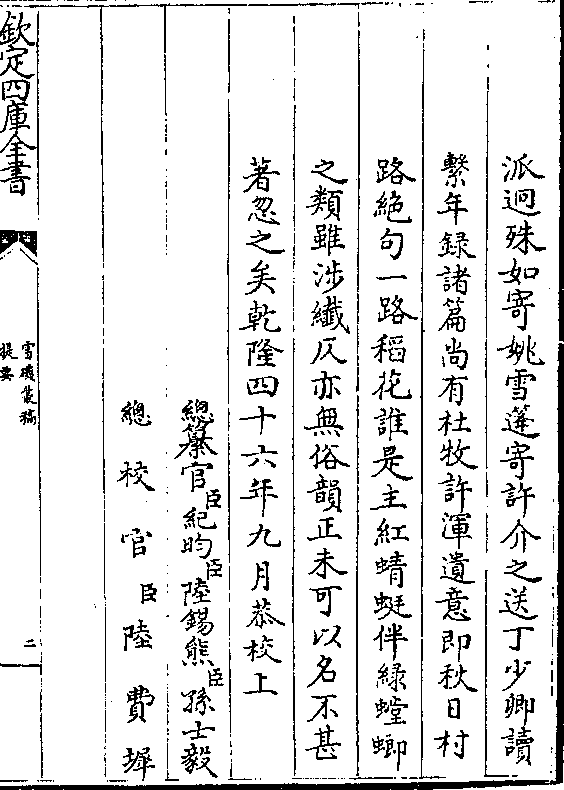 派迥殊如寄姚雪蓬寄許介之送丁少卿讀
繫年録諸篇尚有杜牧許渾遺意即秋日村
路絶句一路稻花誰是主紅蜻蜓伴緑螳螂
之類雖涉纖仄亦無俗韻正未可以名不甚
著忽之矣乾隆四十六年九月恭校上
總纂官臣紀昀臣陸錫熊臣孫士毅
總校官臣陸費墀
欽定四庫全書
雪磯叢稿
提要
二